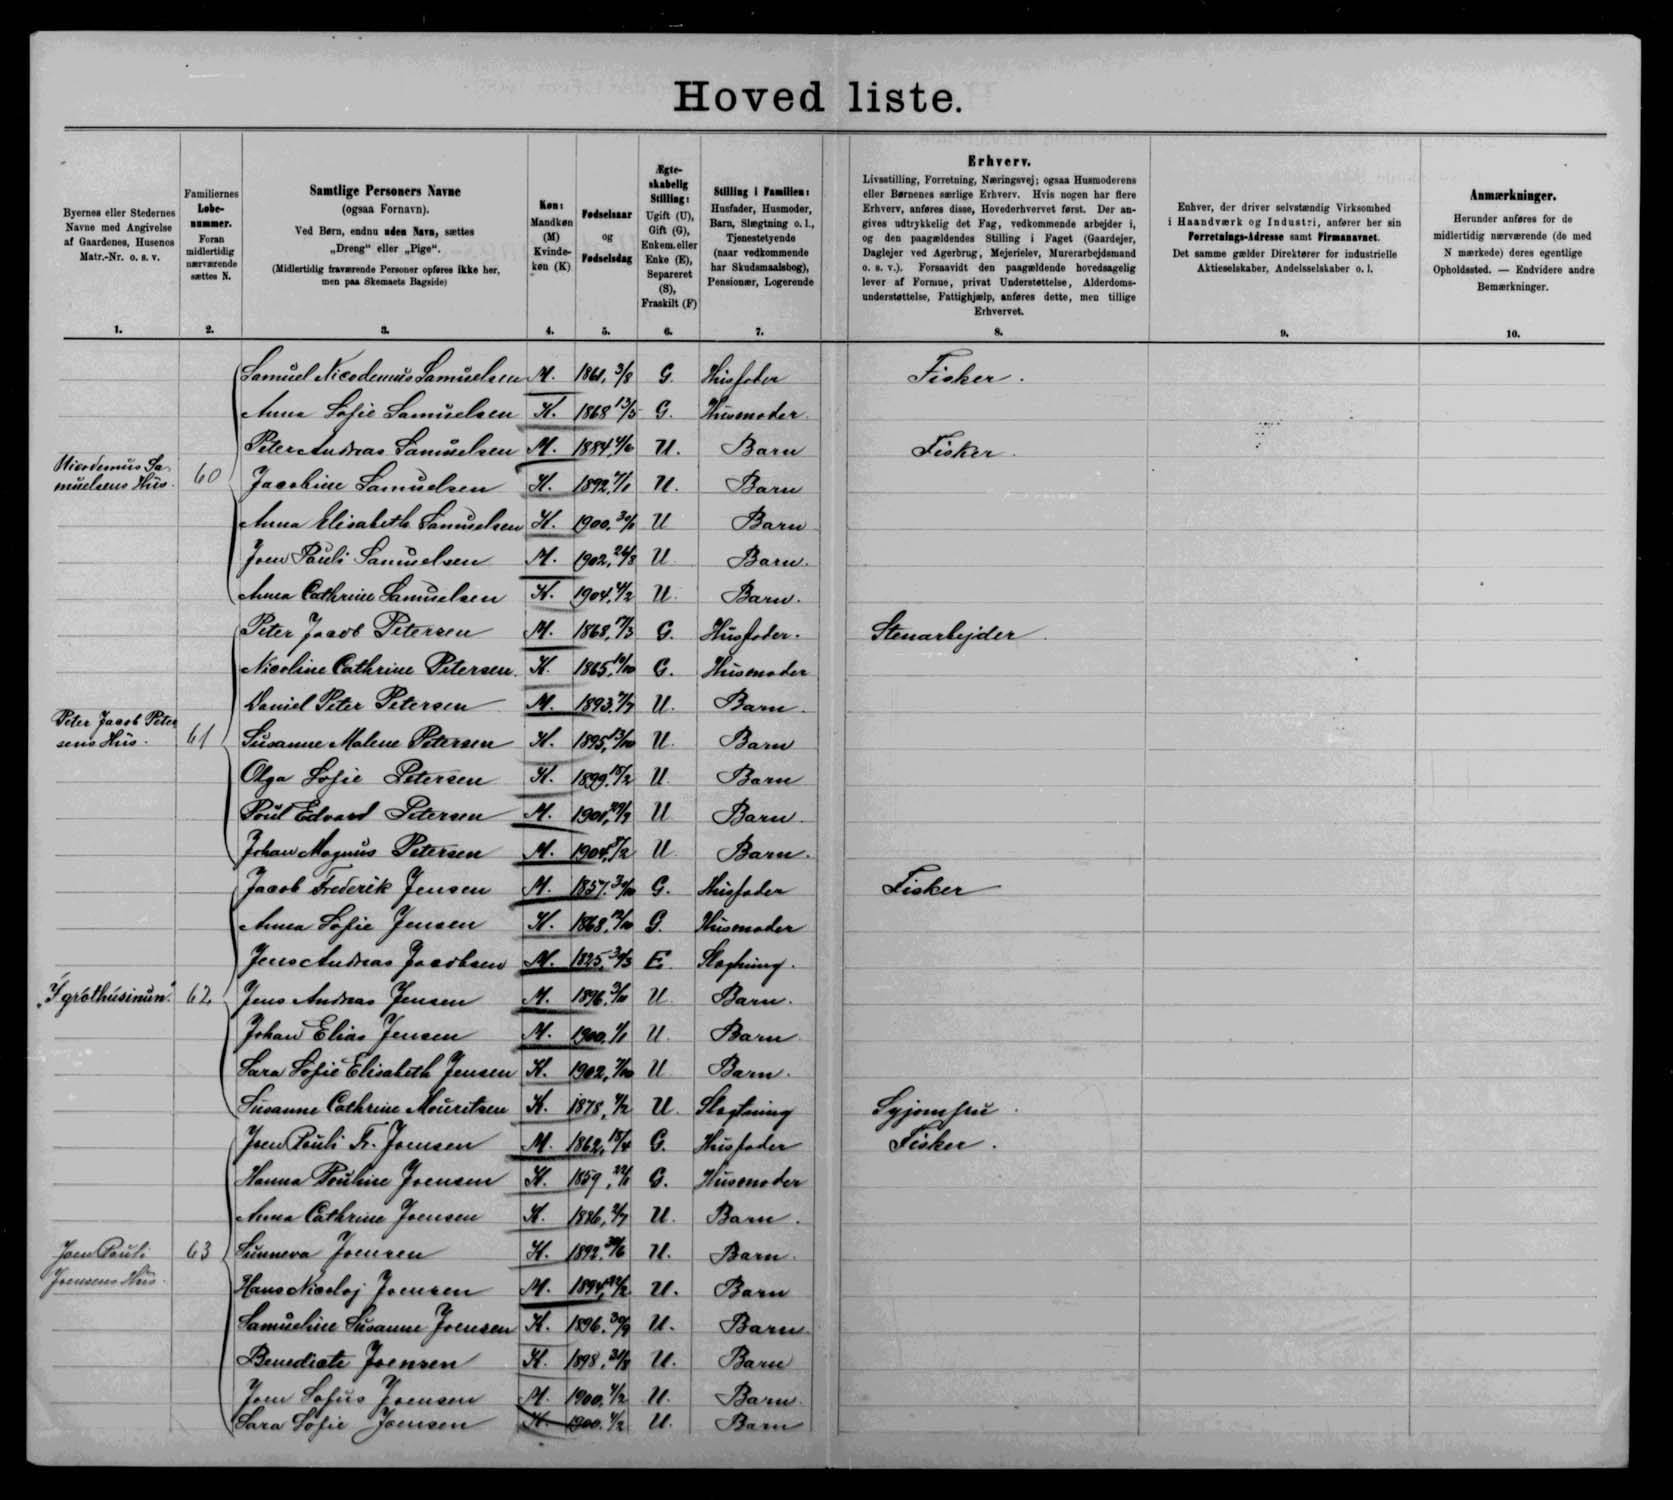 Hoved liste.
Byernes eller Stedernes Navne med Angivelse af Gaardenes, Husenes Matr.-Nr. o. s. v.
Familiernes Løbenummer. Foran midlertidig nærværende sættes N.
Samtlige Personers Navne (ogsaa Fornavn). Ved Børn, endnu uden Navn, sættes „Dreng“ eller „Pige“. (Midlertidig fraværende Personer opføres ikke her, men paa Skemaets Bagside)
Køn: Mandkøn (M) Kvindekøn (K)
Fødselsaar og Fødselsdag
Ægteskabelig Stilling: Ugift (U), Gift (G), Enkem. eller Enke (E), Separeret (S), Fraskilt (F)
Stilling i Familien: Husfader, Husmoder, Barn, Slægtning o. l., Tjenestetyende (naar vedkommende har Skudsmaalsbog), Pensionær, Logerende
Erhverv.
Livsstilling, Forretning, Næringsvej; ogsaa Husmoderens
eller Børnenes særlige Erhverv. Hvis nogen har flere
Erhverv, anføres disse, Hovederhvervet først. Der an-
gives udtrykkelig det Fag, vedkommende arbejder i,
og den paagældendes Stilling i Faget (Gaardejer,
Daglejer ved Agerbrug, Mejerielev, Murerarbejdsmand
o. s. v.). Forsaavidt den paagældende hovedsagelig
lever af Formue, privat Understøttelse, Alderdoms-
understøttelse, Fattighjælp, anføres dette, men tillige
Erhvervet.
Enhver, der driver selvstændig Virksomhed
i Haandværk og Industri, anfører her sin
Forretnings-Adresse samt Firmanavnet.
Det samme gælder Direktører for industrielle
Aktieselskaber, Andelsselskaber o. l.
Anmærkninger.
Herunder anføres for de
midlertidig nærværende (de med
N mærkede) deres egentlige
Opholdssted. — Endvidere andre
Bemærkninger.
1. 2. 3. 4. 5. 6. 7. 8. 9. 10.
Samuel Nicodemus Samuelsen M. 1861, 3/8 G. Husfader Fisker.
Anna Sofie Samuelsen K. 1868 13/5 G. Husmoder.
Peter Andreas Samuelsen M. 1884 U. Barn Fisker.
Nicodemus Sa-
muelsens Hus. 60 Jacobine Samuelsen K. 1892, U. Barn
Anna Elisabeth Samuelsen K. 1900, U Barn
Joen Pauli Samuelsen M. 1902, 26/8 U. Barn.
Anna Cathrine Samuelsen K. 1904, U. Barn.
Peter Jacob Petersen M. 1868, G. Husfader. Stenarbejder.
Nicoline Cathrine Petersen. K. 1865, G. Husmoder
Daniel Peter Petersen M. 1893, U. Barn.
Peter Jacob Peter
sens Hus. 61 Susanne Malene Petersen K. 1895, 13/10 U. Barn
Olga Sofie Petersen K. 1899, 15/2 U. Barn
Poul Edvard Petersen M. 1901, U Barn.
Johan Magnus Petersen M. 1904, U. Barn.
Jacob Frederik Jensen M. 1857, G. Husfader Fisker
Anna Sofie Jensen K. 1868, 12/10 G. Husmoder
Jens Andreas Jacobsen M. 1825, E. Slægtning.
„Í gróthúsinun“ 62 Jens Andreas Jensen M. 1896, U Barn.
Johan Elias Jensen M. 1900, 1/1 U. Barn.
Sara Sofie Elisabeth Jensen K. 1902, U Barn.
Susanne Cathrine Mouritsen K. 1878, U. Slægtning Syjomfru.
Joen Pauli Fr. Joensen M. 1862, 15/4 G. Husfader Fisker.
Hanna Pouline Joensen K. 1859, G. Husmoder
Anna Cathrine Joensen K. 1886, U. Barn.
Joen Pauli
Joensens Hus. 63 Sunneva Joensen K. 1892, U. Barn.
Hans Nicolaj Joensen M. 1894, U. Barn
Samueline Susanne Joensen K. 1896, 30/9 U. Barn.
Benedicte Joensen K. 1898, 31/8 U. Barn
Joen Sofus Joensen M. 1900, 4/2 U. Barn.
Sara Sofie Joensen K. 1900, 4/2 U. Barn